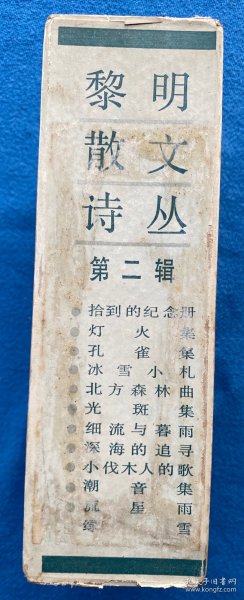 黎明
散文
诗丛
第二辑
拾到的纪念册
灯火集
孔雀集
冰雪小札
北方森林曲
光斑集
细流与暮雨
深海的追寻
小伐木人的歌
潮音集
流星雨
雪
孔夫子旧书网